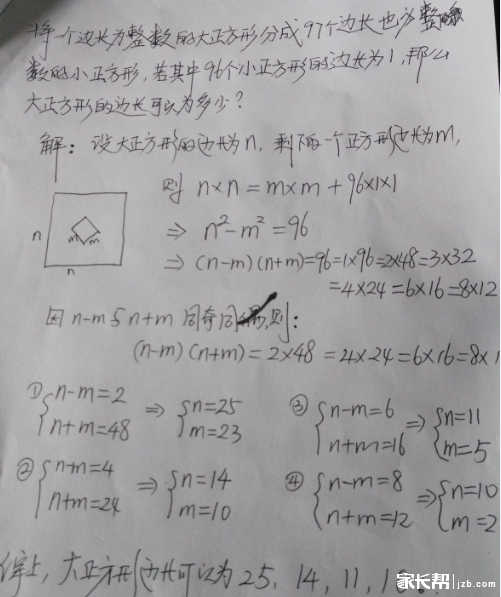 将一个边长为整数的大正方形分成97个边长也为整
数的小正方形,若其中96个小正方形的边长为1,那么
大正方形的边长可以为多少?
解:设大正方形的边长为n,剩下的一个正方形边长为m,
则 n×n=m×m+96×1×1
⇒ n²-m²=96
⇒ (n-m)(n+m)=96=1×96=2×48=3×32
=4×24=6×16=8×12
n
m
m
n
因n-m与n+m同奇同偶,则:
(n-m)(n+m)=2×48=4×24=6×16=8×1
① {n-m=2
n+m=48 ⇒ {n=25
m=23
② {n-m=4
n+m=24 ⇒ {n=14
m=10
③ {n-m=6
n+m=16 ⇒ {n=11
m=5
④ {n-m=8
n+m=12 ⇒ {n=10
m=2
综上,大正方形边长可以为25,14,11,10
家长帮 jzb.com